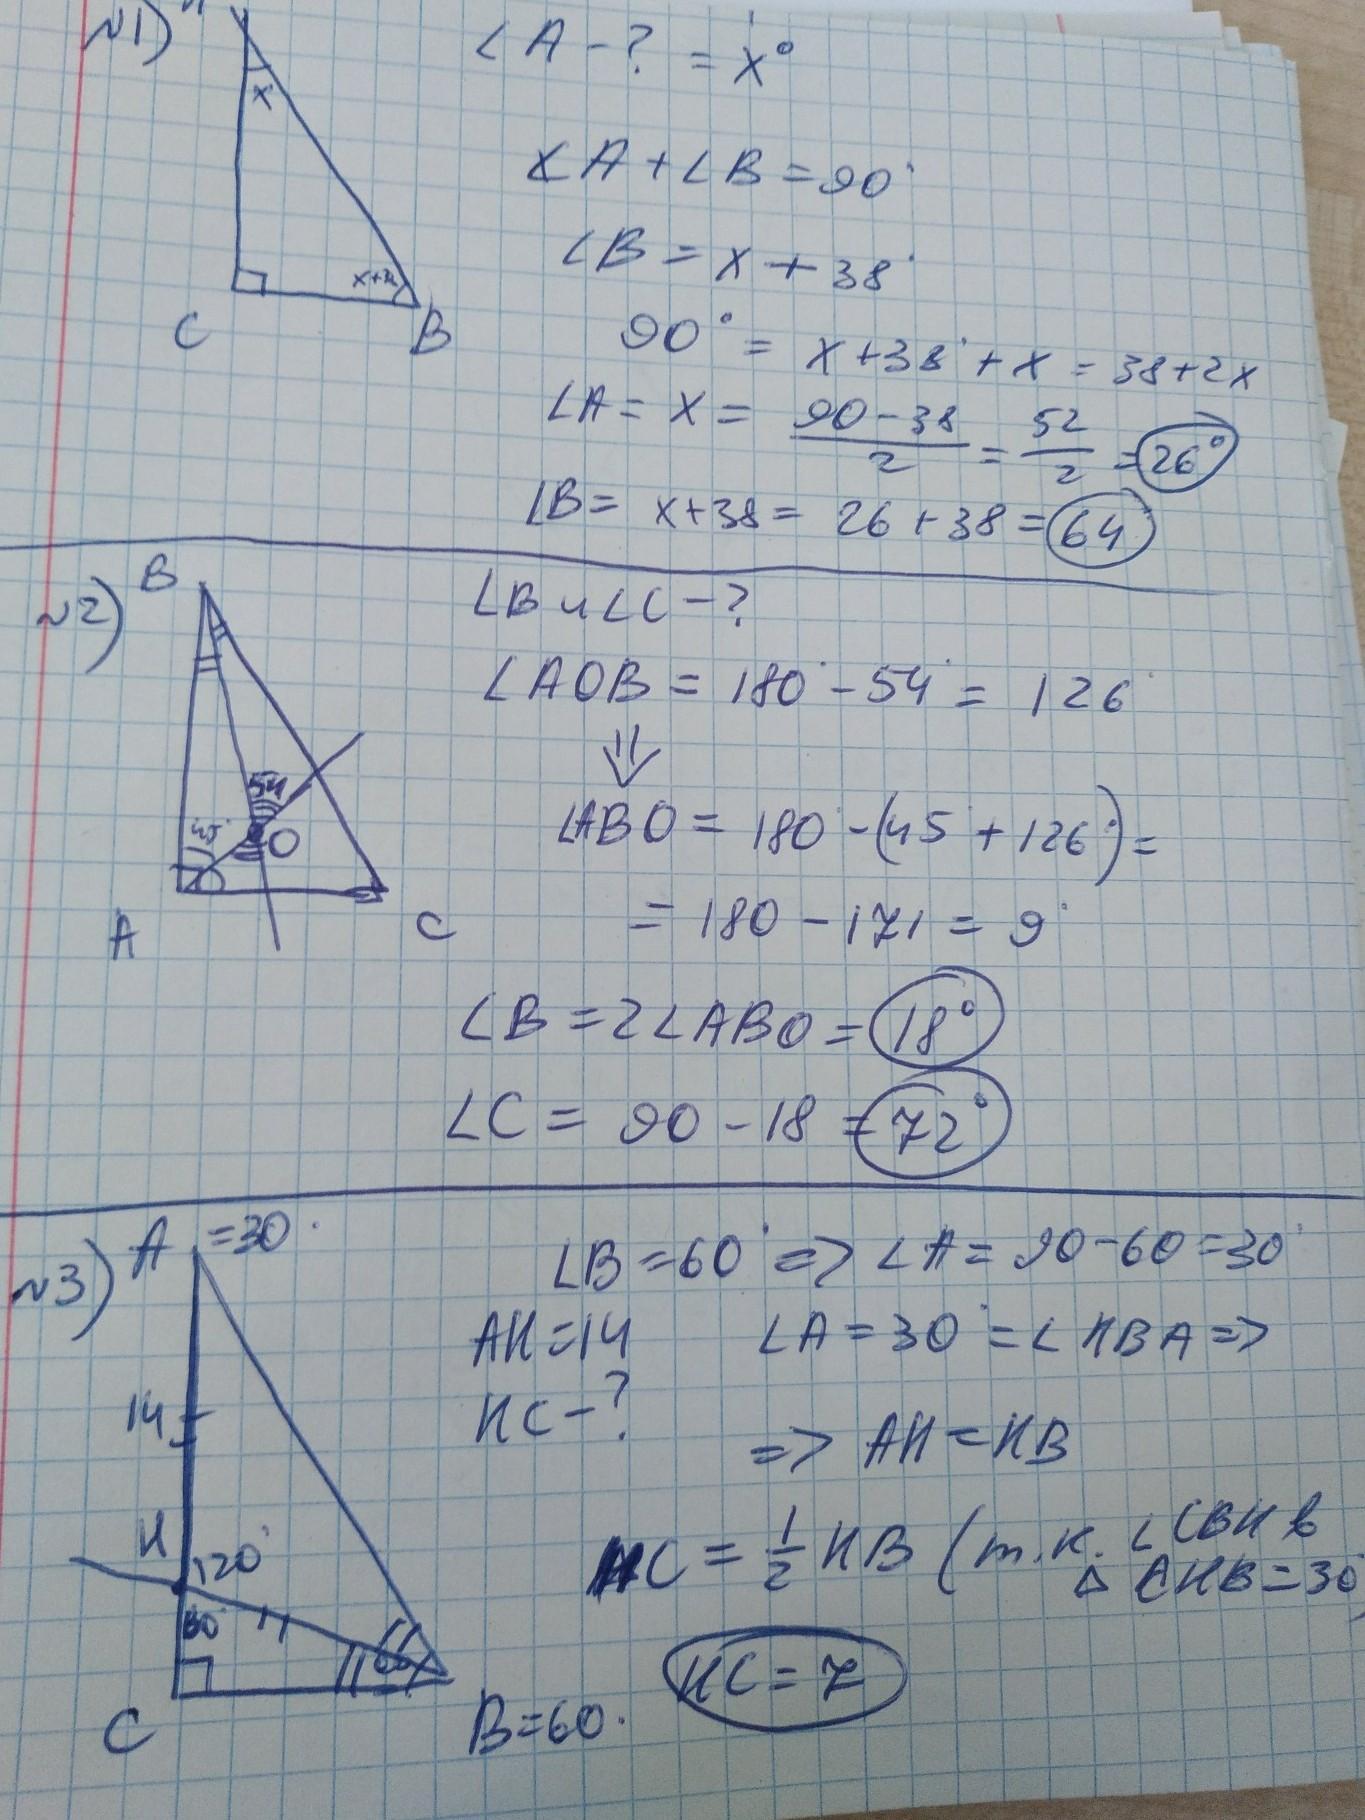 №1)
x
x+38
C
B
∠A - ? = x°
∠A + ∠B = 90°
∠B = x + 38°
90° = x + 38° + x = 38 + 2x
∠A = x = (90 - 38)/2 = 52/2 = 26°
∠B = x + 38 = 26 + 38 = 64
№2)
B
54
45°
O
A
C
∠B и ∠C - ?
∠AOB = 180° - 54° = 126°
⇓
∠ABO = 180° - (45° + 126°) =
= 180 - 171 = 9°
∠B = 2∠ABO = 18°
∠C = 90 - 18 = 72°
№3)
A = 30°
14
К
120°
60°
C
B = 60°
∠B = 60° => ∠A = 90 - 60 = 30°
АК = 14
∠A = 30° = ∠КВА =>
КС - ?
=> АК = КВ
КС = 1/2 КВ (т.к. ∠СВК в
△ СКВ = 30°
КС = 7